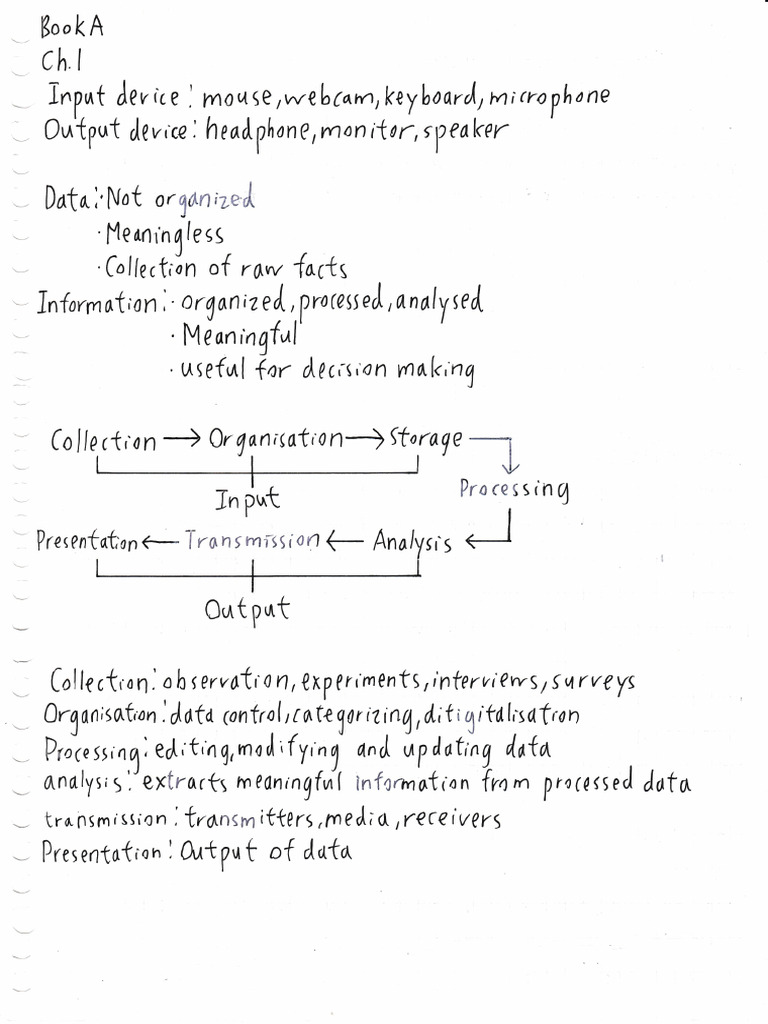 Book A
Ch.1
Input device: mouse, webcam, keyboard, microphone
Output device: headphone, monitor, speaker
Data: · Not organized
· Meaningless
· Collection of raw facts
Information: · organized, processed, analysed
· Meaningful
· useful for decision making
Collection → Organisation → Storage
Input
Processing
Presentation ← Transmission ← Analysis
Output
Collection: observation, experiments, interviews, surveys
Organisation: data control, categorizing, ditigitalisation
Processing: editing, modifying and updating data
analysis: extracts meaningful information from processed data
transmission: transmitters, media, receivers
Presentation: Output of data